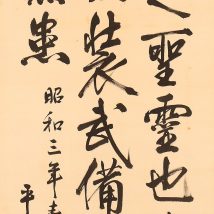 之聖靈也
裝武備
患
昭和三年春
平